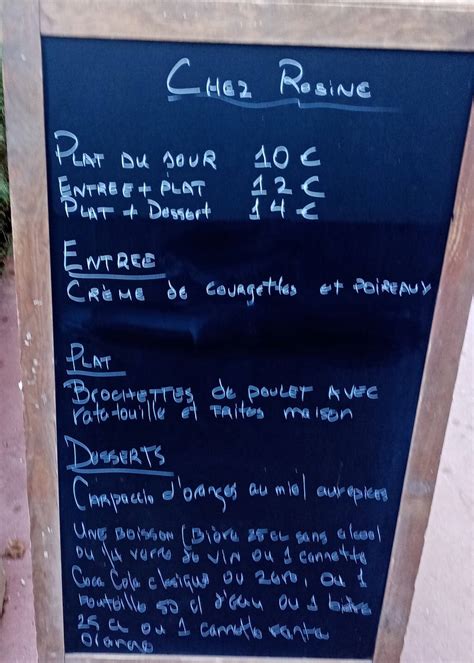 CHEZ ROSINE
PLAT DU JOUR 10 €
ENTREE + PLAT 12 €
PLAT + Dessert 14 €
ENTREE
CRÈME de courgettes et POIREAUX
PLAT
BROCHETTES de POULET AVEC
ratatouille et FRITES maison
DUSSERTS
CARPACCIO d'oranges au miel aux épices
UNE BOISSON (Bière 25 CL sans alcool
ou 1 verre de VIN ou 1 cannette
Coca Cola classique ou zero, ou 1
bouteille 50 cl d'eau ou 1 bière
25 CL ou 1 cannette Fanta
Orange